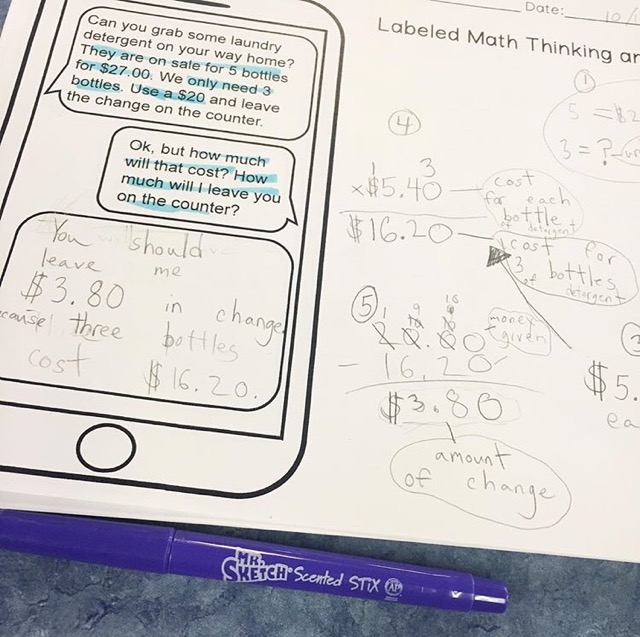 Date: 10/
Labeled Math Thinking an
Can you grab some laundry
detergent on your way home?
They are on sale for 5 bottles
for $27.00. We only need 3
bottles. Use a $20 and leave
the change on the counter.
Ok, but how much
will that cost? How
much will I leave you
on the counter?
You should
leave me
$3.80 in change
cause three bottles
cost $16.20.
1
5 = $2
3 = ?
4
1 3
×$5.40
$16.20
cost
for each
bottle
of detergent
cost for
3 bottles
of detergent
5
20.00
- 16.20
$3.80
money
given
amount
of change
$5.
ea
MR.
SKETCH Scented STIX AP